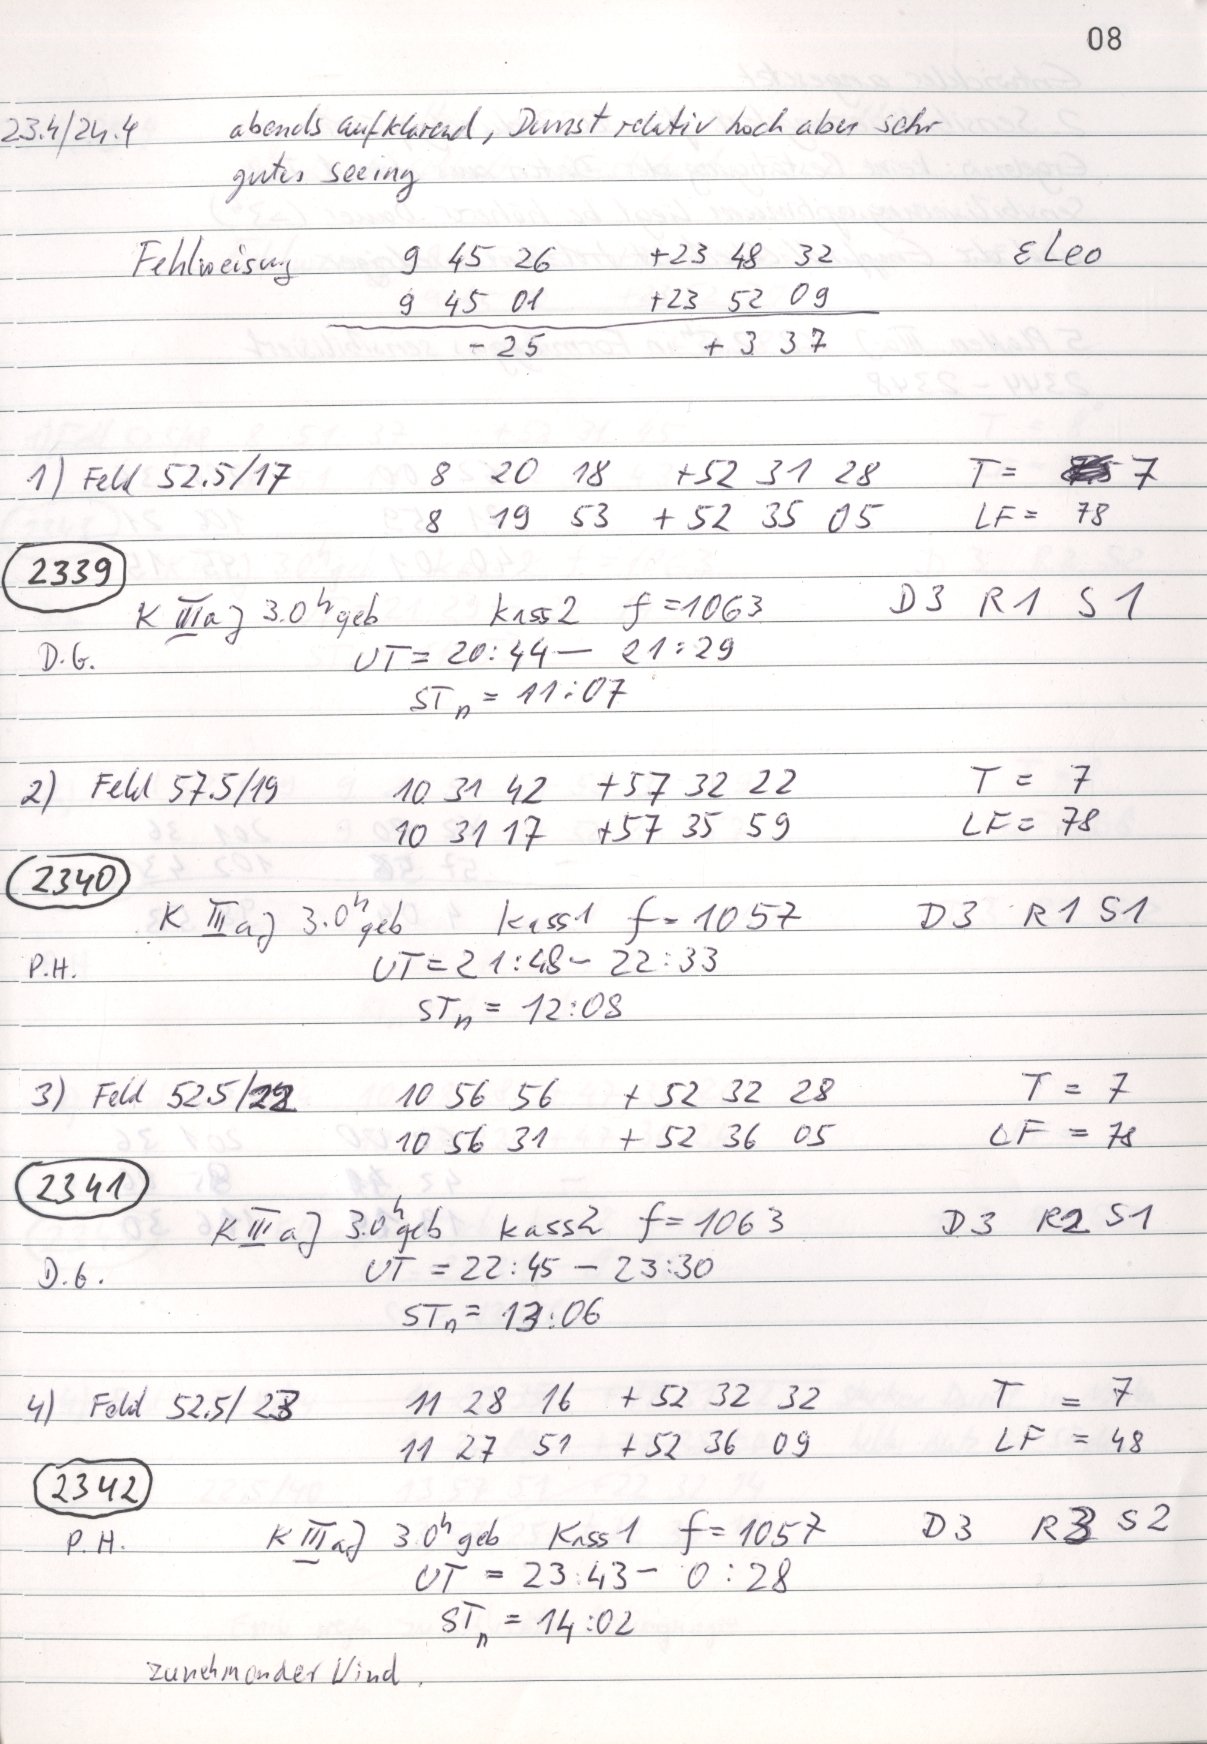 08
23.4/24.4 abends aufklarend, Dunst relativ hoch aber sehr
gutes seeing
Fehlweisung 9 45 26 +23 48 32 ε Leo
9 45 01 +23 52 09
- 25 + 3 37
1) Feld 52.5/17 8 20 18 +52 31 28 T = 7
8 19 53 + 52 35 05 LF = 78
2339
K IIIaJ 3.0h geb Kass2 f = 1063 D3 R1 S1
D.G. UT = 20:44 — 21:29
STn = 11:07
2) Feld 57.5/19 10 31 42 +57 32 22 T = 7
10 31 17 +57 35 59 LF = 78
2340
K IIIaJ 3.0h geb Kass1 f = 1057 D3 R1 S1
P.H. UT = 21:48 - 22:33
STn = 12:08
3) Feld 52.5/22 10 56 56 + 52 32 28 T = 7
10 56 31 + 52 36 05 LF = 78
2341
K IIIaJ 3.0h geb Kass2 f = 1063 D3 R2 S1
D.G. UT = 22:45 - 23:30
STn = 13:06
4) Feld 52.5/23 11 28 16 + 52 32 32 T = 7
11 27 51 +52 36 09 LF = 48
2342
P.H. K IIIaJ 3.0h geb Kass1 f = 1057 D3 R3 S2
UT = 23:43 - 0:28
STn = 14:02
zunehmender Wind.